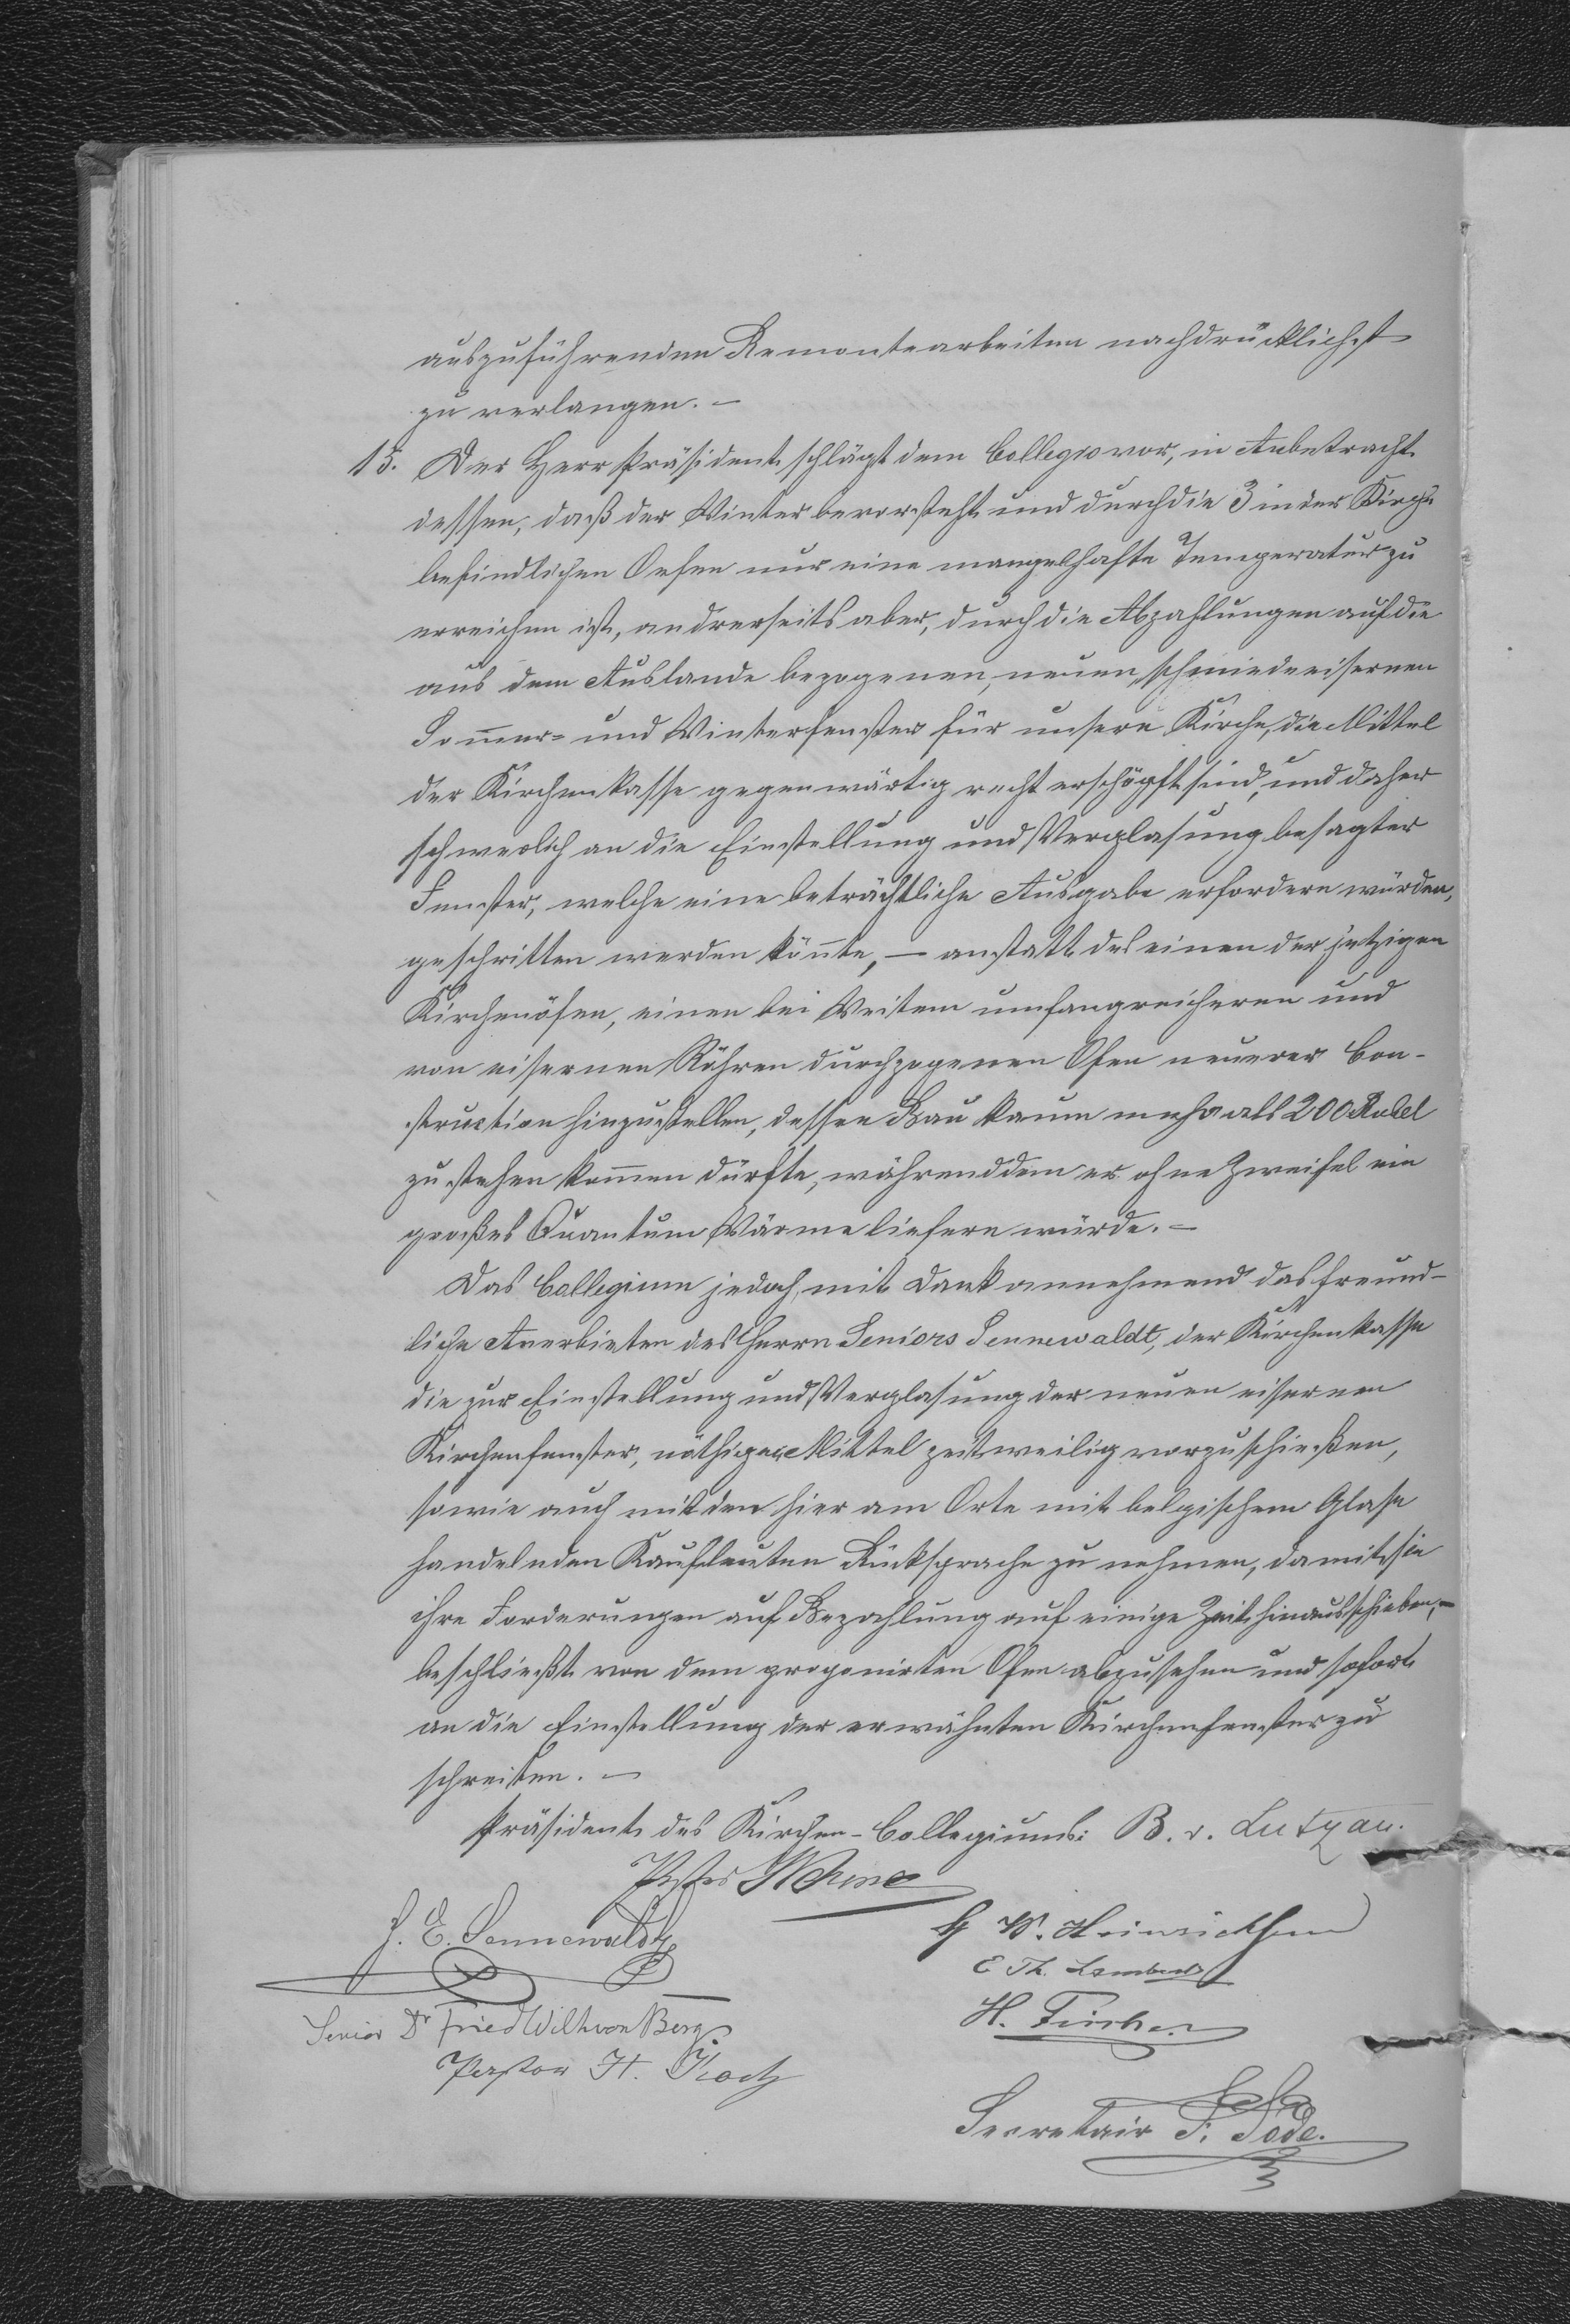 auszuführenden Remontearbeiten nachdrücklichst
zu verlangen. –
15. Der Herr Präsident schlägt dem Collegio vor, in Anbetracht
dessen, daß der Winter bevorsteht und durch die 3 in der Kirche
befindlichen Oefen nur eine mangelhafte Temperatur zu
erreichen ist, andrerseits aber, durch die Abzahlungen auf die
aus dem Auslande bezogenen, neuen, schmiedeeisernen
Som̅er- und Winterfenster für unsere Kirche, die Mittel
der Kirchenkasse gegenwärtig recht erschöpft sind, und daher
schwerlich an die Einstellung und Verglasung besagter
Fenster, welche eine beträchtliche Ausgabe erfordern würden,
geschritten werden kön̅te, – anstatt des einen der jetzigen
Kirchenöfen, einen bei Weitem umfangreicheren und
von eisernen Röhren durchzogenen Ofen neuerer Con-
struction hinzustellen, dessen Bau kaum mehr als 200 Rubel
zu stehen kom̅en dürfte, währenddem er ohne Zweifel ein
großes Quantum Wärme liefern würde. –
Das Collegium jedoch, mit Dank annehmend das freund-
liche Anerbieten des Herrn Seniors Sennewaldt, der Kirchenkasse
die zur Einstellung und Verglasung der neuen eisernen
Kirchenfenster, nöthigen Mittel zeitweilig vorzuschießen,
sowie auch mit den hier am Orte mit belgischem Glase
handelnden Kaufleuten Rücksprache zu nehmen, damit sie
ihre Forderungen auf Bezahlung auf einige Zeit hinausschieben, –
beschließt von dem proponirten Ofen abzusehen und sofort
an die Einstellung der erwähnten Kirchenfenster zu
schreiten. –
Präsident des Kirchen-Collegiums: B. v. Lutzau.
Pastor
J. E. Sennewaldt
W. Heinrichsen
E. Th. Lambert
Senior Dr Fried Wilh von Berg
H. Fischer
Pastor H. Koch
Secretair F. Tode.